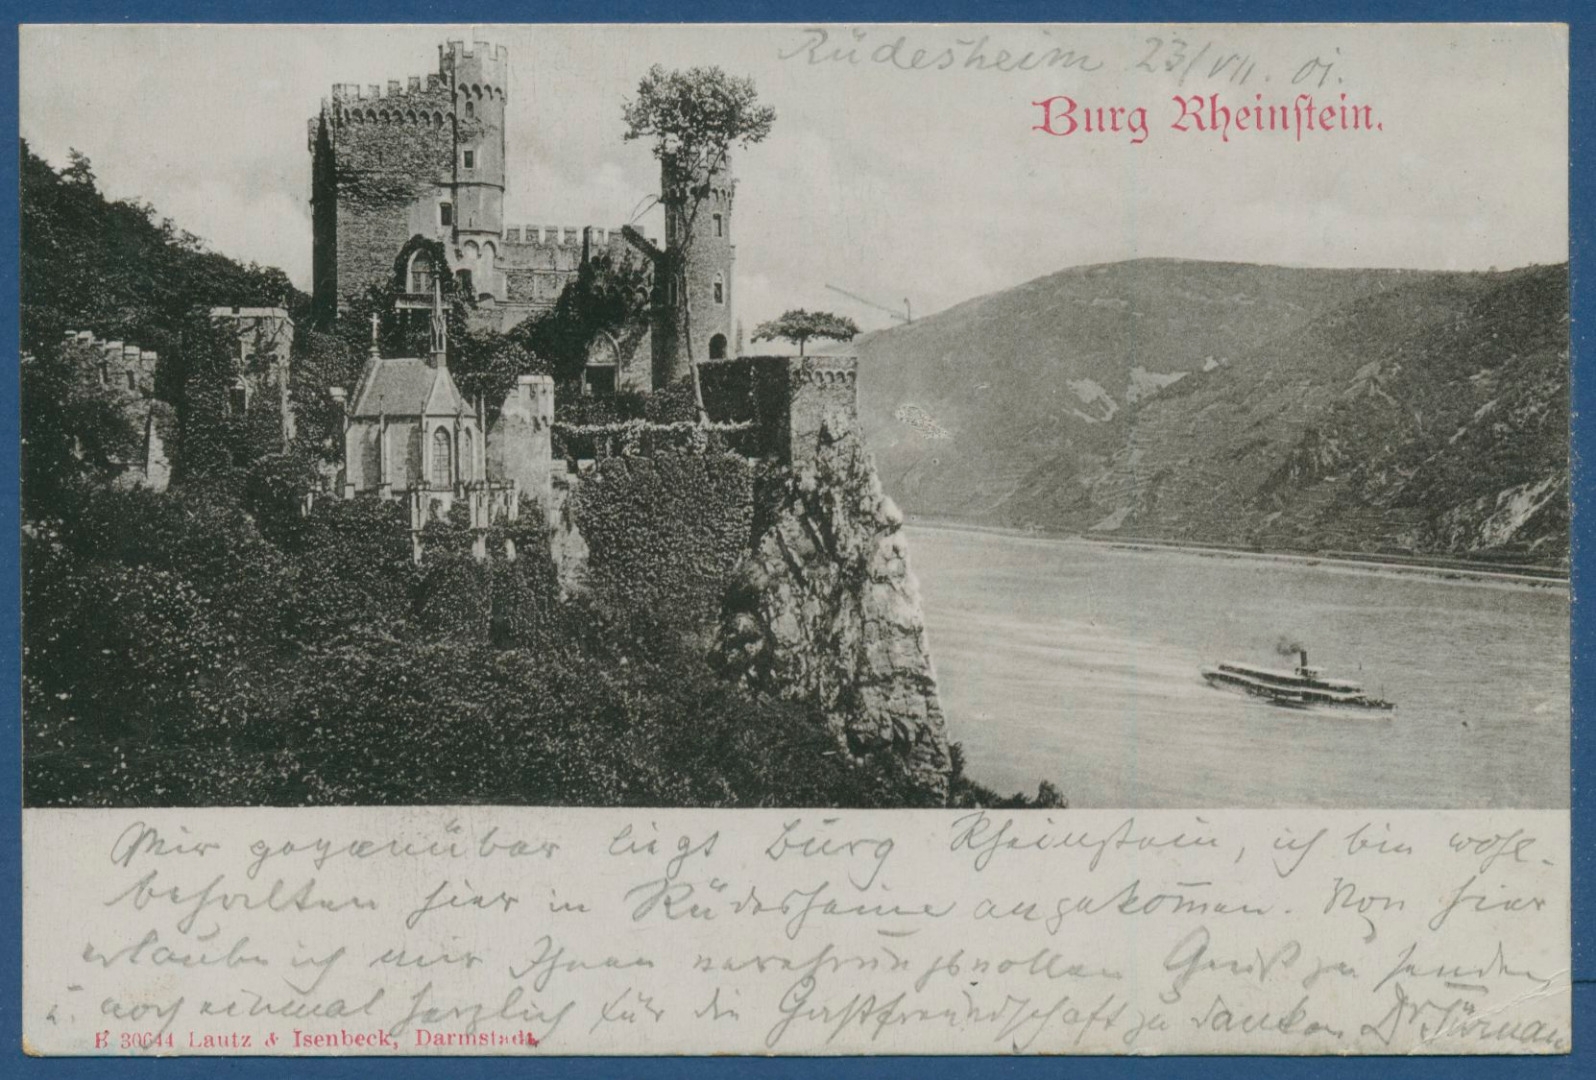 Rüdesheim 23/VII. 01.
Burg Rheinstein.
Mir gegenüber liegt Burg Rheinstein, ich bin wohl-
behalten hier in Rüdesheim angekom̄en. Von hier
erlaube ich mir Ihnen verehrungsvollen Gruß zu senden
u. noch einmal herzlich für die Gastfreundschaft zu danken. Dr
E 30644 Lautz & Isenbeck, Darmstadt.